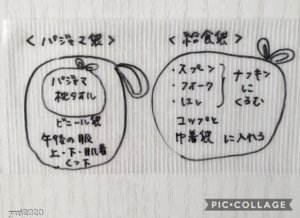 ＜パジャマ袋＞
パジャマ
枕タオル
ビニール袋
午後の服
上・下・肌着
くつ下
＜給食袋＞
・スプーン
・フォーク
・はし
ナフキン
に
くるむ
コップと
巾着袋 に入れる
PIC•COLLAGE